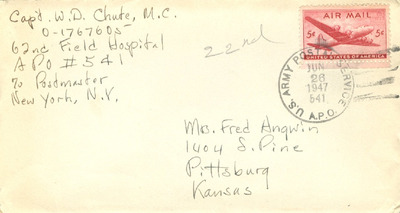 Capt. W.D. Chute, M.C.
O-1767605
62nd Field Hospital
APO #541
℅ Postmaster
New York, N.Y.
22nd
AIR MAIL
5¢ 5¢
UNITED STATES OF AMERICA
U.S. ARMY POSTAL SERVICE
JUN
28
1947
541
A.P.O.
Mrs. Fred Angwin
1404 S. Pine
Pittsburg
Kansas